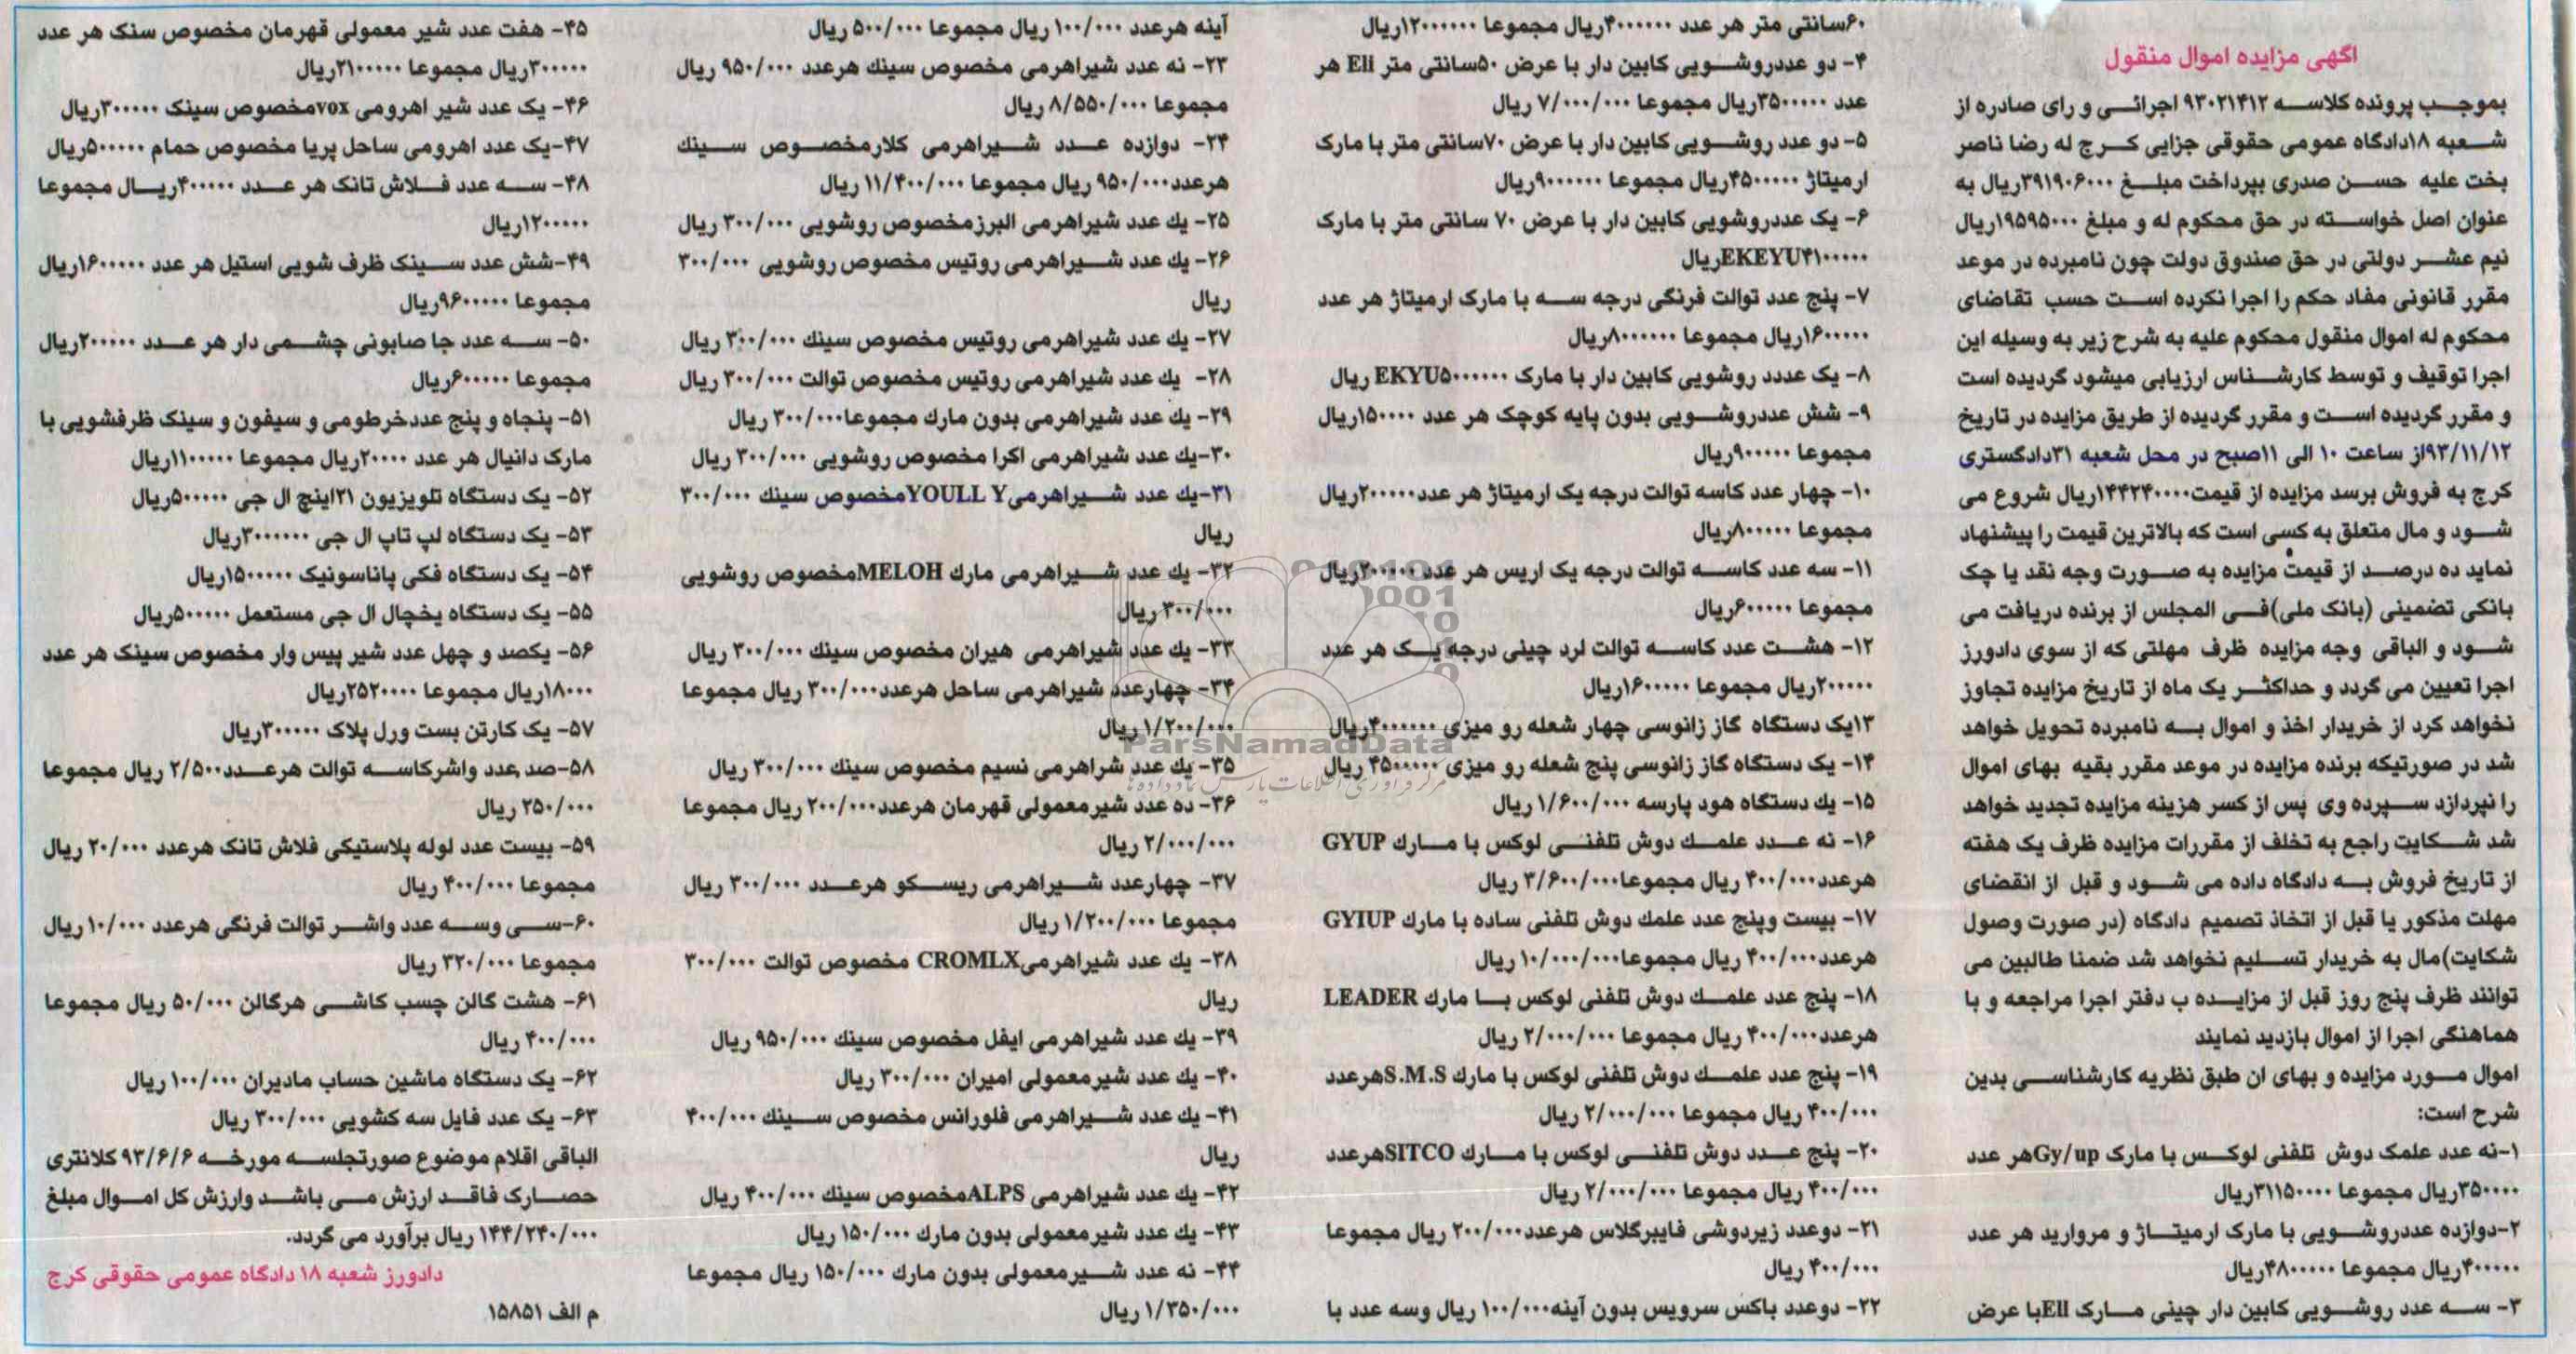 اگهی مزایده اموال منقول
بموجب پرونده کلاسه ۹۳۰۲۱۴۱۲ اجرائی و رای صادره از
شعبه ۱۸دادگاه عمومی حقوقی جزایی کرج له رضا ناصر
بخت علیه حسن صدری بپرداخت مبلغ ۳۹۱۹۰۶۰۰۰ریال به
عنوان اصل خواسته در حق محکوم له و مبلغ ۱۹۵۹۵۰۰۰ریال
نیم عشر دولتی در حق صندوق دولت چون نامبرده در موعد
مقرر قانونی مفاد حکم را اجرا نکرده است حسب تقاضای
محکوم له اموال منقول محکوم علیه به شرح زیر به وسیله این
اجرا توقیف و توسط کارشناس ارزیابی میشود گردیده است
و مقرر گردیده است و مقرر گردیده از طریق مزایده در تاریخ
۹۳/۱۱/۱۲از ساعت ۱۰ الی ۱۱صبح در محل شعبه ۳۱دادگستری
کرج به فروش برسد مزایده از قیمت۱۴۴۲۴۰۰۰۰ریال شروع می
شود و مال متعلق به کسی است که بالاترین قیمت را پیشنهاد
نماید ده درصد از قیمت مزایده به صورت وجه نقد یا چک
بانکی تضمینی (بانک ملی)فی المجلس از برنده دریافت می
شود و الباقی وجه مزایده ظرف مهلتی که از سوی دادورز
اجرا تعیین می گردد و حداکثر یک ماه از تاریخ مزایده تجاوز
نخواهد کرد از خریدار اخذ و اموال به نامبرده تحویل خواهد
شد در صورتیکه برنده مزایده در موعد مقرر بقیه بهای اموال
را نپردازد سپرده وی پس از کسر هزینه مزایده تجدید خواهد
شد شکایت راجع به تخلف از مقررات مزایده ظرف یک هفته
از تاریخ فروش به دادگاه داده می شود و قبل از انقضای
مهلت مذکور یا قبل از اتخاذ تصمیم دادگاه (در صورت وصول
شکایت)مال به خریدار تسلیم نخواهد شد ضمنا طالبین می
توانند ظرف پنج روز قبل از مزایده ب دفتر اجرا مراجعه و با
هماهنگی اجرا از اموال بازدید نمایند
اموال مورد مزایده و بهای ان طبق نظریه کارشناسی بدین
شرح است:
۱-نه عدد علمک دوش تلفنی لوکس با مارک Gy/upهر عدد
۳۵۰۰۰۰ریال مجموعا ۳۱۱۵۰۰۰۰ریال
۲-دوازده عددروشویی با مارک ارمیتاژ و مروارید هر عدد
۴۰۰۰۰۰ریال مجموعا ۴۸۰۰۰۰۰ریال
۳- سه عدد روشویی کابین دار چینی مارک Eliبا عرض
۶۰سانتی متر هر عدد ۴۰۰۰۰۰۰ریال مجموعا ۱۲۰۰۰۰۰۰ریال
۴- دو عددروشویی کابین دار با عرض ۵۰سانتی متر Eli هر
عدد ۳۵۰۰۰۰۰ریال مجموعا ۷/۰۰۰/۰۰۰ ریال
۵- دو عدد روشویی کابین دار با عرض ۷۰سانتی متر با مارک
ارمیتاژ ۴۵۰۰۰۰۰ریال مجموعا ۹۰۰۰۰۰۰ریال
۶- یک عددروشویی کابین دار با عرض ۷۰ سانتی متر با مارک
EKEYU۴۱۰۰۰۰۰ریال
۷- پنج عدد توالت فرنگی درجه سه با مارک ارمیتاژ هر عدد
۱۶۰۰۰۰۰ریال مجموعا ۸۰۰۰۰۰۰ریال
۸- یک عددد روشویی کابین دار با مارک EKYU۵۰۰۰۰۰۰ ریال
۹- شش عددروشویی بدون پایه کوچک هر عدد ۱۵۰۰۰۰ریال
مجموعا ۹۰۰۰۰۰ریال
۱۰- چهار عدد کاسه توالت درجه یک ارمیتاژ هر عدد۲۰۰۰۰۰ریال
مجموعا ۸۰۰۰۰۰ریال
۱۱- سه عدد کاسه توالت درجه یک اریس هر عدد ۲۰۰۰۰۰ریال
مجموعا ۶۰۰۰۰۰ریال
۱۲- هشت عدد کاسه توالت لرد چینی درجه یک هر عدد
۲۰۰۰۰۰ریال مجموعا ۱۶۰۰۰۰۰ریال
۱۳یک دستگاه گاز زانوسی چهار شعله رو میزی ۴۰۰۰۰۰۰ریال
۱۴- یک دستگاه گاز زانوسی پنج شعله رو میزی ۴۵۰۰۰۰۰ ریال
۱۵- یك دستگاه هود پارسه ۱/۶۰۰/۰۰۰ ریال
۱۶- نه عدد علمك دوش تلفنی لوکس با مارك GYUP
هرعدد۴۰۰/۰۰۰ ریال مجموعا۳/۶۰۰/۰۰۰ ریال
۱۷- بیست وپنج عدد علمك دوش تلفنی ساده با مارك GYIUP
هرعدد۴۰۰/۰۰۰ ریال مجموعا۱۰/۰۰۰/۰۰۰ ریال
۱۸- پنج عدد علمك دوش تلفنی لوکس با مارك LEADER
هرعدد۴۰۰/۰۰۰ ریال مجموعا ۲/۰۰۰/۰۰۰ ریال
۱۹- پنج عدد علمك دوش تلفنی لوکس با مارك S.M.Sهرعدد
۴۰۰/۰۰۰ ریال مجموعا ۲/۰۰۰/۰۰۰ ریال
۲۰- پنج عدد دوش تلفنی لوکس با مارك SITCOهرعدد
۴۰۰/۰۰۰ ریال مجموعا ۲/۰۰۰/۰۰۰ ریال
۲۱- دوعدد زیردوشی فایبرگلاس هرعدد۲۰۰/۰۰۰ ریال مجموعا
۴۰۰/۰۰۰ ریال
۲۲- دوعدد باکس سرویس بدون آینه۱۰۰/۰۰۰ ریال وسه عدد با
آینه هرعدد ۱۰۰/۰۰۰ ریال مجموعا ۵۰۰/۰۰۰ ریال
۲۳- نه عدد شیراهرمی مخصوص سینك هرعدد ۹۵۰/۰۰۰ ریال
مجموعا ۸/۵۵۰/۰۰۰ ریال
۲۴- دوازده عدد شیراهرمی کلارمخصوص سینك
هرعدد۹۵۰/۰۰۰ ریال مجموعا ۱۱/۴۰۰/۰۰۰ ریال
۲۵- یك عدد شیراهرمی البرزمخصوص روشویی ۳۰۰/۰۰۰ ریال
۲۶- یك عدد شیراهرمی روتیس مخصوص روشویی ۳۰۰/۰۰۰
ریال
۲۷- یك عدد شیراهرمی روتیس مخصوص سینك ۳۰۰/۰۰۰ ریال
۲۸- یك عدد شیراهرمی روتیس مخصوص توالت ۳۰۰/۰۰۰ ریال
۲۹- یك عدد شیراهرمی بدون مارك مجموعا۳۰۰/۰۰۰ ریال
۳۰-یك عدد شیراهرمی اکرا مخصوص روشویی ۳۰۰/۰۰۰ ریال
۳۱-یك عدد شیراهرمیYOULL Yمخصوص سینك ۳۰۰/۰۰۰
ریال
۳۲- یك عدد شیراهرمی مارك MELOHمخصوص روشویی
۳۰۰/۰۰۰ ریال
۳۳- یك عدد شیراهرمی هیران مخصوص سینك ۳۰۰/۰۰۰ ریال
۳۴- چهارعدد شیراهرمی ساحل هرعدد۳۰۰/۰۰۰ ریال مجموعا
۱/۲۰۰/۰۰۰ ریال
۳۵- یك عدد شراهرمی نسیم مخصوص سینك ۳۰۰/۰۰۰ ریال
۳۶- ده عدد شیرمعمولی قهرمان هرعدد۲۰۰/۰۰۰ ریال مجموعا
۲/۰۰۰/۰۰۰ ریال
۳۷- چهارعدد شیراهرمی ریسکو هرعدد ۳۰۰/۰۰۰ ریال
مجموعا ۱/۲۰۰/۰۰۰ ریال
۳۸- یك عدد شیراهرمیCROMLX مخصوص توالت ۳۰۰/۰۰۰
ریال
۳۹- یك عدد شیراهرمی ایفل مخصوص سینك ۹۵۰/۰۰۰ ریال
۴۰- یك عدد شیرمعمولی امیران ۳۰۰/۰۰۰ ریال
۴۱- یك عدد شیراهرمی فلورانس مخصوص سینك ۴۰۰/۰۰۰
ریال
۴۲- یك عدد شیراهرمی ALPSمخصوص سینك ۴۰۰/۰۰۰ ریال
۴۳- یك عدد شیرمعمولی بدون مارك ۱۵۰/۰۰۰ ریال
۴۴- نه عدد شیرمعمولی بدون مارك ۱۵۰/۰۰۰ ریال مجموعا
۱/۳۵۰/۰۰۰ ریال
۴۵- هفت عدد شیر معمولی قهرمان مخصوص سنک هر عدد
۳۰۰۰۰۰ریال مجموعا ۲۱۰۰۰۰۰ریال
۴۶- یک عدد شیر اهرومی voxمخصوص سینک ۳۰۰۰۰۰ریال
۴۷-یک عدد اهرومی ساحل پریا مخصوص حمام ۵۰۰۰۰۰ریال
۴۸- سه عدد فلاش تانک هر عدد ۴۰۰۰۰۰ریال مجموعا
۱۲۰۰۰۰۰ریال
۴۹-شش عدد سینک ظرف شویی استیل هر عدد ۱۶۰۰۰۰۰ریال
مجموعا ۹۶۰۰۰۰۰ریال
۵۰- سه عدد جا صابونی چشمی دار هر عدد ۲۰۰۰۰۰ریال
مجموعا ۶۰۰۰۰۰ریال
۵۱- پنجاه و پنج عددخرطومی و سیفون و سینک ظرفشویی با
مارک دانیال هر عدد ۲۰۰۰۰ریال مجموعا ۱۱۰۰۰۰۰ریال
۵۲- یک دستگاه تلویزیون ۲۱اینچ ال جی ۵۰۰۰۰۰ریال
۵۳- یک دستگاه لپ تاپ ال جی ۳۰۰۰۰۰۰ریال
۵۴- یک دستگاه فکی پاناسونیک ۱۵۰۰۰۰۰ریال
۵۵- یک دستگاه یخچال ال جی مستعمل ۵۰۰۰۰۰ریال
۵۶- یکصد و چهل عدد شیر پیس وار مخصوص سینک هر عدد
۱۸۰۰۰ریال مجموعا ۲۵۲۰۰۰۰ریال
۵۷- یک کارتن بست ورل پلاک ۳۰۰۰۰۰ریال
۵۸-صد عدد واشرکاسه توالت هرعدد۲/۵۰۰ ریال مجموعا
۲۵۰/۰۰۰ ریال
۵۹- بیست عدد لوله پلاستیکی فلاش تانک هرعدد ۲۰/۰۰۰ ریال
مجموعا ۴۰۰/۰۰۰ ریال
۶۰-سی وسه عدد واشر توالت فرنگی هرعدد ۱۰/۰۰۰ ریال
مجموعا ۳۲۰/۰۰۰ ریال
۶۱- هشت گالن چسب کاشی هرگالن ۵۰/۰۰۰ ریال مجموعا
۴۰۰/۰۰۰ ریال
۶۲- یک دستگاه ماشین حساب مادیران ۱۰۰/۰۰۰ ریال
۶۳- یک عدد فایل سه کشویی ۳۰۰/۰۰۰ ریال
الباقی اقلام موضوع صورتجلسه مورخه ۹۳/۶/۶ کلانتری
حصارک فاقد ارزش می باشد وارزش کل اموال مبلغ
۱۴۴/۲۴۰/۰۰۰ ریال برآورد می گردد.
دادورز شعبه ۱۸ دادگاه عمومی حقوقی کرج
م الف ۱۵۸۵۱
ParsNamadData